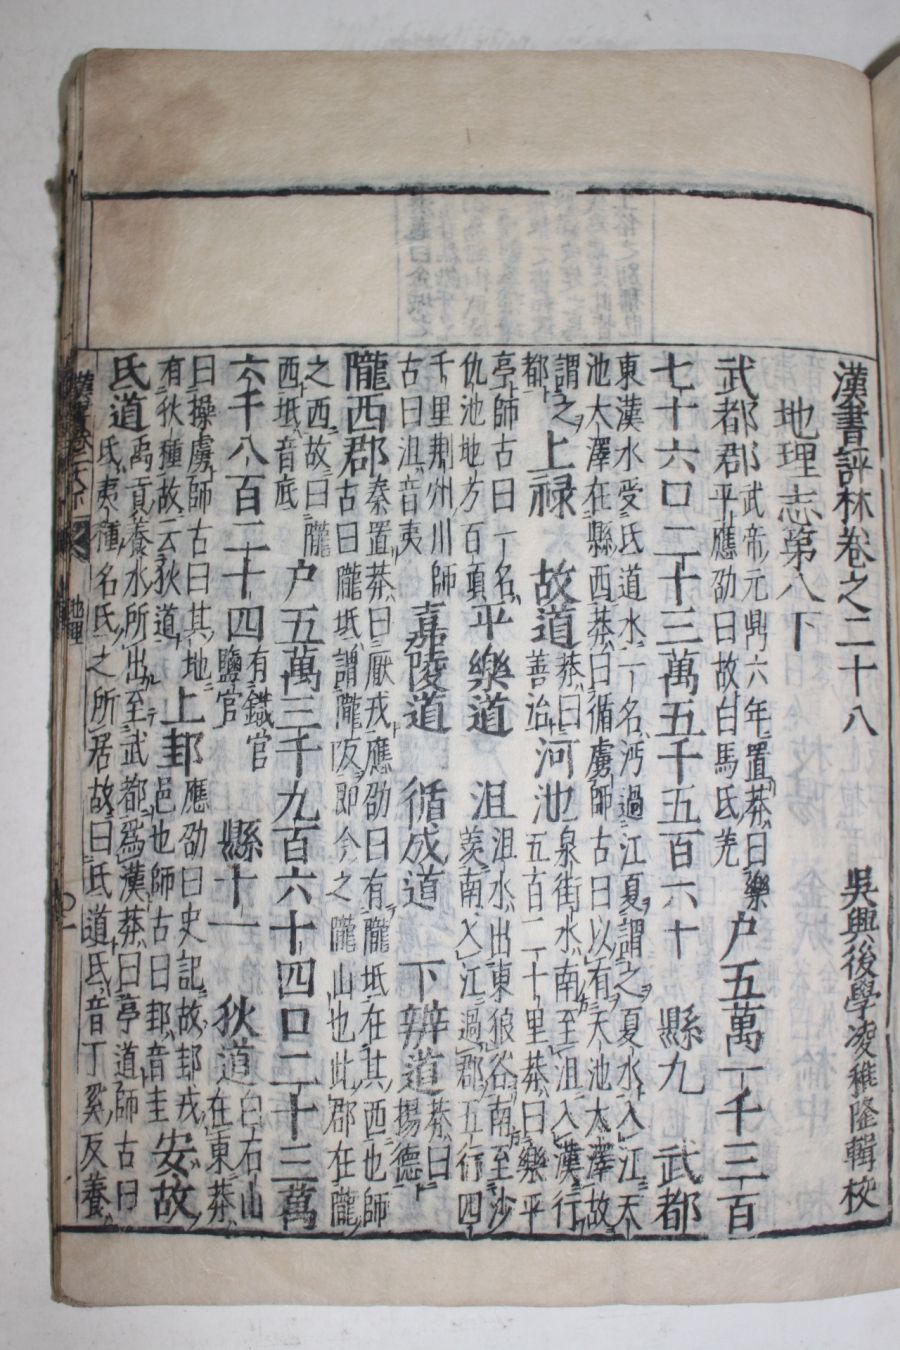 漢書評林卷之二十八
吳興後學凌稚隆輯校
地理志第八下
武都郡武帝元鼎六年置莽曰樂平應劭曰故白馬氐羌户五萬一千三百
七十六口二十三萬五千五百六十 縣九 武都
東漢水受氐道水一名沔過江夏謂之夏水入江天池大澤在縣西莽曰循虜師古曰以有天池大澤故
謂之都上禄 故道莽曰善治河池泉街水南至沮入漢行五百二十里莽曰樂平
亭師古曰一名仇池地方百頃平樂道 沮沮水出東狼谷南至沙羡南入江過郡五行四
千里荆州川師古曰沮音夷嘉陵道 循成道 下辨道莽曰揚德
隴西郡秦置莽曰厭戎應劭曰有隴坻在其西也師古曰隴坻謂隴阪即今之隴山也此郡在隴
之西故曰隴西坻音底 户五萬三千九百六十四口二十三萬
六千八百二十四有鐵官鹽官 縣十一 狄道白石山在東莽
曰操虜師古曰其地有狄種故云狄道上邽應劭曰史記故邽戎邑也師古曰邽音圭安故
氐道禹貢養水所出至武都爲漢莽曰亭道師古曰氐夷種名氐之所居故曰氐道氐音丁奚反養
地理